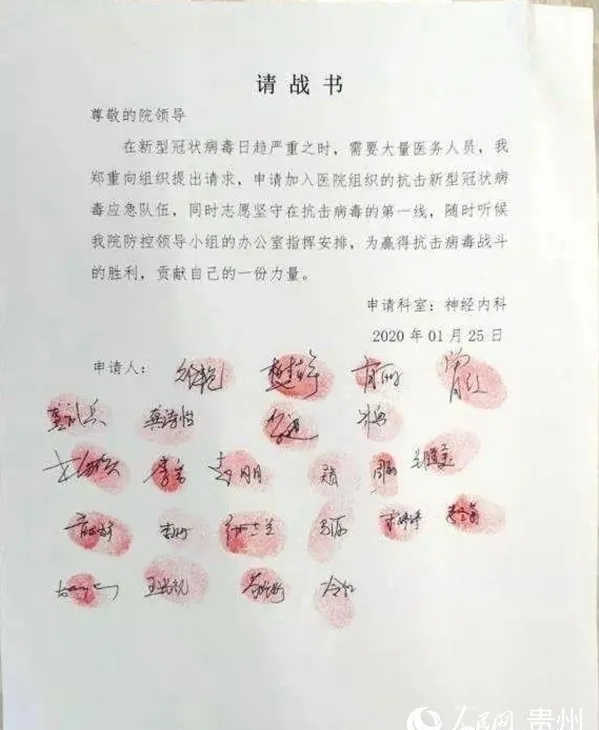 请战书
尊敬的院领导
在新型冠状病毒日趋严重之时，需要大量医务人员，我
郑重向组织提出请求，申请加入医院组织的抗击新型冠状病
毒应急队伍，同时志愿坚守在抗击病毒的第一线，随时听候
我院防控领导小组的办公室指挥安排，为赢得抗击病毒战斗
的胜利，贡献自己的一份力量。
申请科室：神经内科
2020年01月25日
申请人：
人民网 贵州